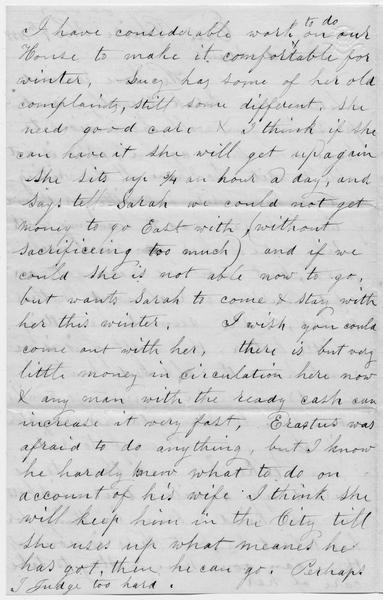 I have considerable work to do on our
House to make it comfortable for
winter, Lucy has some of her old
complaints, still some different, she
needs good care & I think if she
can have it she will get up again
She sits up 3/4 an hour a day, and
says tell Sarah we could not get
money to go East with (without
sacrificeing too much) and if we
could she is not able now to go,
but wants Sarah to come & stay with
her this winter. I wish you could
come out with her, there is but very
little money in circulation here now
& any man with the ready cash can
increase it very fast, Erastus was
afraid to do anything, but I know
he hardly knew what to do on
account of his wife I think she
will keep him in the City till
she uses up what means he
has got, then he can go. Perhaps
I Judge too hard.